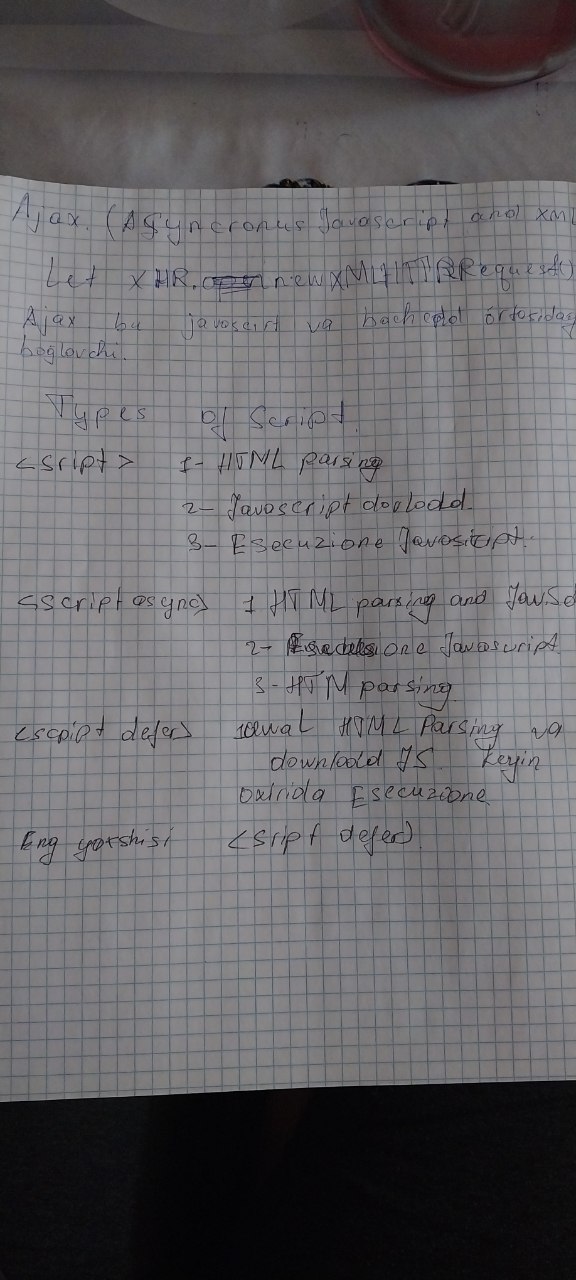 Ajax. (Asyncronus Javascript and XML
Let xHR. new XMLHTTPRequest()
Ajax bu javascirt va backend o'rtasidag
boglovchi.
Types of Script.
<sript> 1- HTML parsing
2- Javascript dovlodd.
3- Esecuzione Javascript.
<script async> 1 HTML parsing and JavSc
2- Javascript.
3- HTM parsing.
<script defer> HTML Parsing va
download JS. keyin
oxirida Esecuzoone
Eng yaxshisi <sript defer>.